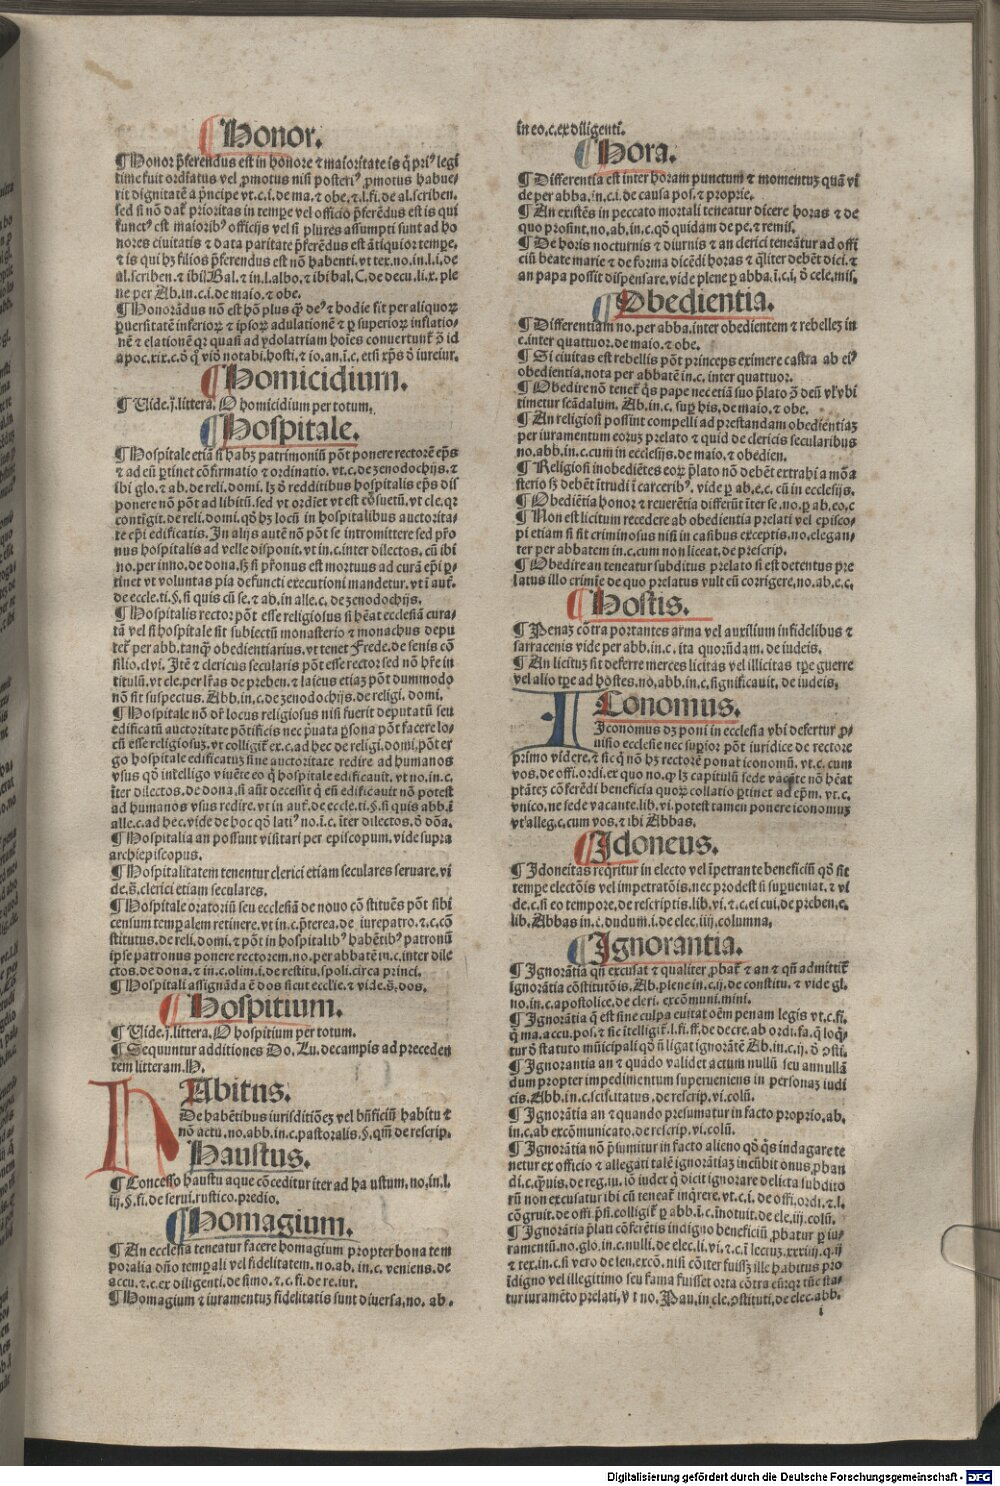 Honor.
¶ Honor p̄ferendus est in honore ⁊ maioritate is q̄ pri⁹ legi
time fuit ordīatus vel ꝓmotus nisi posteri⁹ ꝓmotus habue-
rit dignitatē a p̄ncipe vt.c.i.de ma.⁊ obe.⁊.l.fi.de al.scriben.
sed si nō dat͛ prioritas in tempe vel officio p̄ferēdus est is qui
functꝰ est maioribꝰ officijs vel si plures assumpti sunt ad ho
nores ciuitatis ⁊ data paritate p̄ferēdus est ātiquior tempe,
⁊ is qui hꝫ filios p̄ferendus est nō habenti.vt tex.no.in.l.i.de
al.scriben.⁊ ibi Bal.⁊ in.l.albo.⁊ ibi bal.C.de decu.li.x.ple
ne per Ab.in.c.i.de maio.⁊ obe.
¶ Honorādus nō est hō plus q̄ de⁹ ⁊ hodie fit per aliquoꝝ
ꝑuersitatē inferioꝝ ⁊ ipsoꝝ adulationē ⁊ ꝑ superioꝝ inflatio-
nē ⁊ elationē qr quasi ad ydolatriam hoīes conuertunt͛ ꝯ id
apoc.xix.c.ꝯ q̄ vīō notabi.hosti.⁊ io.an.ī.c.etsi xp̄s ꝯ iureiur.
Homicidium.
¶ Vide.j.littera.O homicidium per totum.
Hospitale.
¶ Hospitale etiā si habꝫ patrimoniū pōt ponere rectorē ep̄s
⁊ ad eū ꝑtinet cōfirmatio ⁊ ordinatio.vt.c.de zenodochijs.⁊
ibi glo.⁊ ab.de reli.domi.lꝫ ꝯ redditibus hospitalis ep̄s dis
ponere nō pōt ad libitū.sed vt ordīet vt est cōsuetū.vt cle.qr
contīgit.de reli.domi.qō hꝫ locū in hospitalibus auctorita-
te ep̄i edificatis. In alijs autē nō pōt se intromittere sed p̄ro
nus hospitalis ad velle disponit.vt in.c.inter dilectos.cū ibi
no.per inno.de dona.sꝫ si p̄ronus est mortuus ad curā ep̄i ꝑ-
tinet vt voluntas pia defuncti executioni mandetur.vt ī aut͛.
de eccle.ti.§.si quis cū se.⁊ ab.in alle.c.de zenodochijs.
¶ Hospitalis rector pōt esse religiosus si hēat ecclesiā cura-
tā vel si hospitale sit subiectū monasterio ⁊ monachus depu
tet͛ per abb.tanqꝫ obedientiarius.vt tenet Frede.de senis cō
silio.clvi. Itē ⁊ clericus secularis pōt esse rector sed nō hr̄e in
titulū.vt cle.per lr̄as de preben.⁊ laicus etiaꝫ pōt dummodo
nō sit suspectus. Abb.in.c.de zenodochijs.de religi.domi.
¶ Hospitale nō dr̄ locus religiosus nisi fuerit deputatū seu
edificatū auctoritate pōtificis nec p̄uata ꝑsona pōt facere lo-
cū esse religiosuꝫ.vt colligit͛ ex.c.ad hec de religi.domi.pōt er
go hospitale edificatuꝫ sine auctoritate redire ad humanos
vsus qō intelligo viuēte eo q̄ hospitale edificauit.vt no.in.c.
īter dilectos.de dona.si aūt decessit q̄ eū edificauit nō potest
ad humanos vsus redire.vt in aut͛.de eccle.ti.§.si quis abb.ī
alle.c.ad hec.vide de hoc qō latiꝰ no.ī.c.īter dilectos.ꝯ dōa.
¶ Hospitalia an possunt visitari per episcopum.vide supra
archiepiscopus.
¶ Hospitalitatem tenentur clerici etiam seculares seruare.vi
de.s̄.clerici etiam seculares.
¶ Hospitale oratoriū seu ecclesiā de nouo cō stituēs pōt sibi
censum temꝑalem retinere.vt in.c.p̄terea.de iurepatro.⁊.c.cō
stitutus.de reli.domi.⁊ pōt in hospitalibꝰ habētibꝰ patronū
ipse patronus ponere rectorem.no.per abbatē in.c.inter dile
ctos.de dona.⁊ in.c.olim.i.de restitu.spoli.circa princi.
¶ Hospitali assignāda ē dos sicut ecclie.⁊ vide.s̄.dos.
Hospitium.
¶ Vide.j.littera.O hospitium per totum.
¶ Sequuntur additiones Do.Lu.decampis ad preceden
tem litteram.H.
HAbitus.
De habētibus iurisditiōeꝫ vel bn̄ficiū habitu ⁊
nō actu.no.abb.in.c.pastoralis.§.qm̄ de rescrip.
Haustus.
¶ Concesso haustu aque cōceditur iter ad ha ustum.no.in.l.
iij.§.fi.de serui.rustico.predio.
Homagium.
¶ An ecclesia teneatur facere homagium propter bona tem
poralia dn̄o temꝑali vel fidelitatem.no.ab.in.c.veniens.de
accu.⁊.c.ex diligenti.de simo.⁊.c.fi.de re.iur.
¶ Homagium ⁊ iuramentuꝫ fidelitatis sunt diuersa.no.ab.
in eo.c.ex diligenti.
Hora.
¶ Differentia est inter horam punctum ⁊ momentuꝫ quā vi
de per abba.in.c.i.de causa pos.⁊ proprie.
¶ An existēs in peccato mortali teneatur dicere horas ⁊ de
quo prosint.no.ab.in.c.qō quidam de pe.⁊ remis.
¶ De horis nocturnis ⁊ diurnis ⁊ an clerici teneātur ad offi
ciū beate marie ⁊ de forma dicēdi horas ⁊ q̄liter debēt dici.⁊
an papa possit dispensare.vide plene ꝑ abba.ī.c.i.ꝯ cele.mis.
Obedientia.
¶ Differentiam no.per abba.inter obedientem ⁊ rebelleꝫ in
c.inter quattuor.de maio.⁊ obe.
¶ Si ciuitas est rebellis pōt princeps eximere castra ab eiꝰ
obedientia.nota per abbatē in.c.inter quattuor.
¶ Obedire nō tenet͛ q̄s pape nec etiā suo p̄lato ꝯ deū vl̓ vbi
timetur scādalum. Ab.in.c.suꝑ his.de maio.⁊ obe.
¶ An religiosi possint compelli ad prestandam obedientiaꝫ
per iuramentum eoruꝫ prelato ⁊ quid de clericis secularibus
no.abb.in.c.cum in ecclesijs.de maio.⁊ obedien.
¶ Religiosi inobediētes eoꝝ p̄lato nō debēt extrahi a mōa
sterio sꝫ debēt ītrudi ī carceribꝰ.vide ꝑ ab.e.c.cū in ecclesijs.
¶ Obediētia honor ⁊ reuerētia differūt īter se.no.ꝑ ab.eo.c
¶ Non est licitum recedere ab obedientia prelati vel episco-
pi etiam si sit criminosus nisi in casibus exceptis.no.elegan-
ter per abbatem in.c.cum non liceat.de prescrip.
¶ Obedire an teneatur subditus prelato si est detentus pre
latus illo crimīe de quo prelatus vult eū corrigere.no.ab.e.c.
Hostis.
¶ Penaꝫ cōtra portantes arma vel auxilium infidelibus ⁊
sarracenis vide per abb.in.c.ita quorūdam.de iudeis.
¶ An licituꝫ sit deferre merces licitas vel illicitas tꝑe guerre
vel alio tꝑe ad hostes.no.abb.in.c.significauit.de iudeis.
IConomus.
Iconomus dꝫ poni in ecclesia vbi defertur ꝓ-
uisio ecclesie nec suꝑior pōt iuridice de rectore
primo vidēre.⁊ sic q̄ nō hꝫ rectorē ponat iconomū.vt.c.cum
vos.de offi.ordi.ex quo no.ꝙ lꝫ capitulū sede vacāte nō hēat
ptāteꝫ cōferēdi beneficia quoꝝ collatio ꝑtinet ad ep̄m.vt.c.
vnico.ne sede vacante.lib.vi.potest tamen ponere iconomuꝫ
vt alleg.c.cum vos.⁊ ibi Abbas.
Idoneus.
¶ Idoneitas reqritur in electo vel īpetrante beneficiū qō sit
temꝑe electōis vel impetratōis.nec prodest si supueniat.⁊ vi
de.c.si eo tempore.de rescriptis.lib.vi.⁊.c.ei cui.de preben.e.
lib. Abbas in.c.dudum.i.de elec.iiij.columna.
Ignorantia.
¶ Ignorātia qn̄ excusat ⁊ qualiter ꝓbat͛ ⁊ an ⁊ qn̄ admittit͛
ignorātia cōstitutōis. Ab.plene in.c.ij.de constitu.⁊ vide gl.
no.in.c.apostolice.de cleri.excōmuni.mini.
¶ Ignorātia q̄ est sine culpa euitat oēm penam legis vt.c.fi.
q̄ ma.accu.pos.⁊ sic ītelligit͛.l.fi.ff.de decre.ab ordi.fa.q̄ loq̄-
tur ꝯ statuto mūicipali qō n̄ ligat ignorātē Ab.in.c.ij.ꝯ ꝯsti.
¶ Ignorantia an ⁊ quādo validet actum nullū seu annullā
dum propter impedimentum superueniens in personaꝫ iudi
cis. Abb.in.c.sciscitatus.de rescrip.vi.colū.
¶ Ignorātia an ⁊ quando presumatur in facto proprio.ab.
in.c.ab excōmunicato.de rescrip.vi.colū.
¶ Ignorātia nō p̄sumitur in facto alieno qō q̄s indagare te
netur ex officio ⁊ allegati talē ignorātiaꝫ incūbit onus ꝓban
di.c.q̄uis.de reg.iu.iō iudex q̄ dicit ignorare delicta subdito
rū non excusatur ibi cū teneat͛ inq̄rere.vt.c.i.de offi.ordi.⁊.l.
cōgruit.de offi.p̄si.colligit͛ ꝑ abb.ī.c.īnotuit.de ele.iij.colū.
¶ Ignorātia p̄lati cōferētis indigno beneficiū ꝓbatur ꝑ iu-
ramentū.no.glo.in.c.nulli.de elec.li.vi.⁊.c.ī lectuꝫ.xxxiiij.q.ij
⁊ tex.in.c.si vero de sen.excō.nisi cōiter fuissꝫ ille habitus pro
īdigno vel illegitimo seu fama fuisset orta cōtra eūqꝫ tūc sta-
tur iuramēto prelati.v t no. Pau.in cle.ꝯstituti.de elec.abb.
i
Digitalisierung gefördert durch die Deutsche Forschungsgemeinschaft - DFG